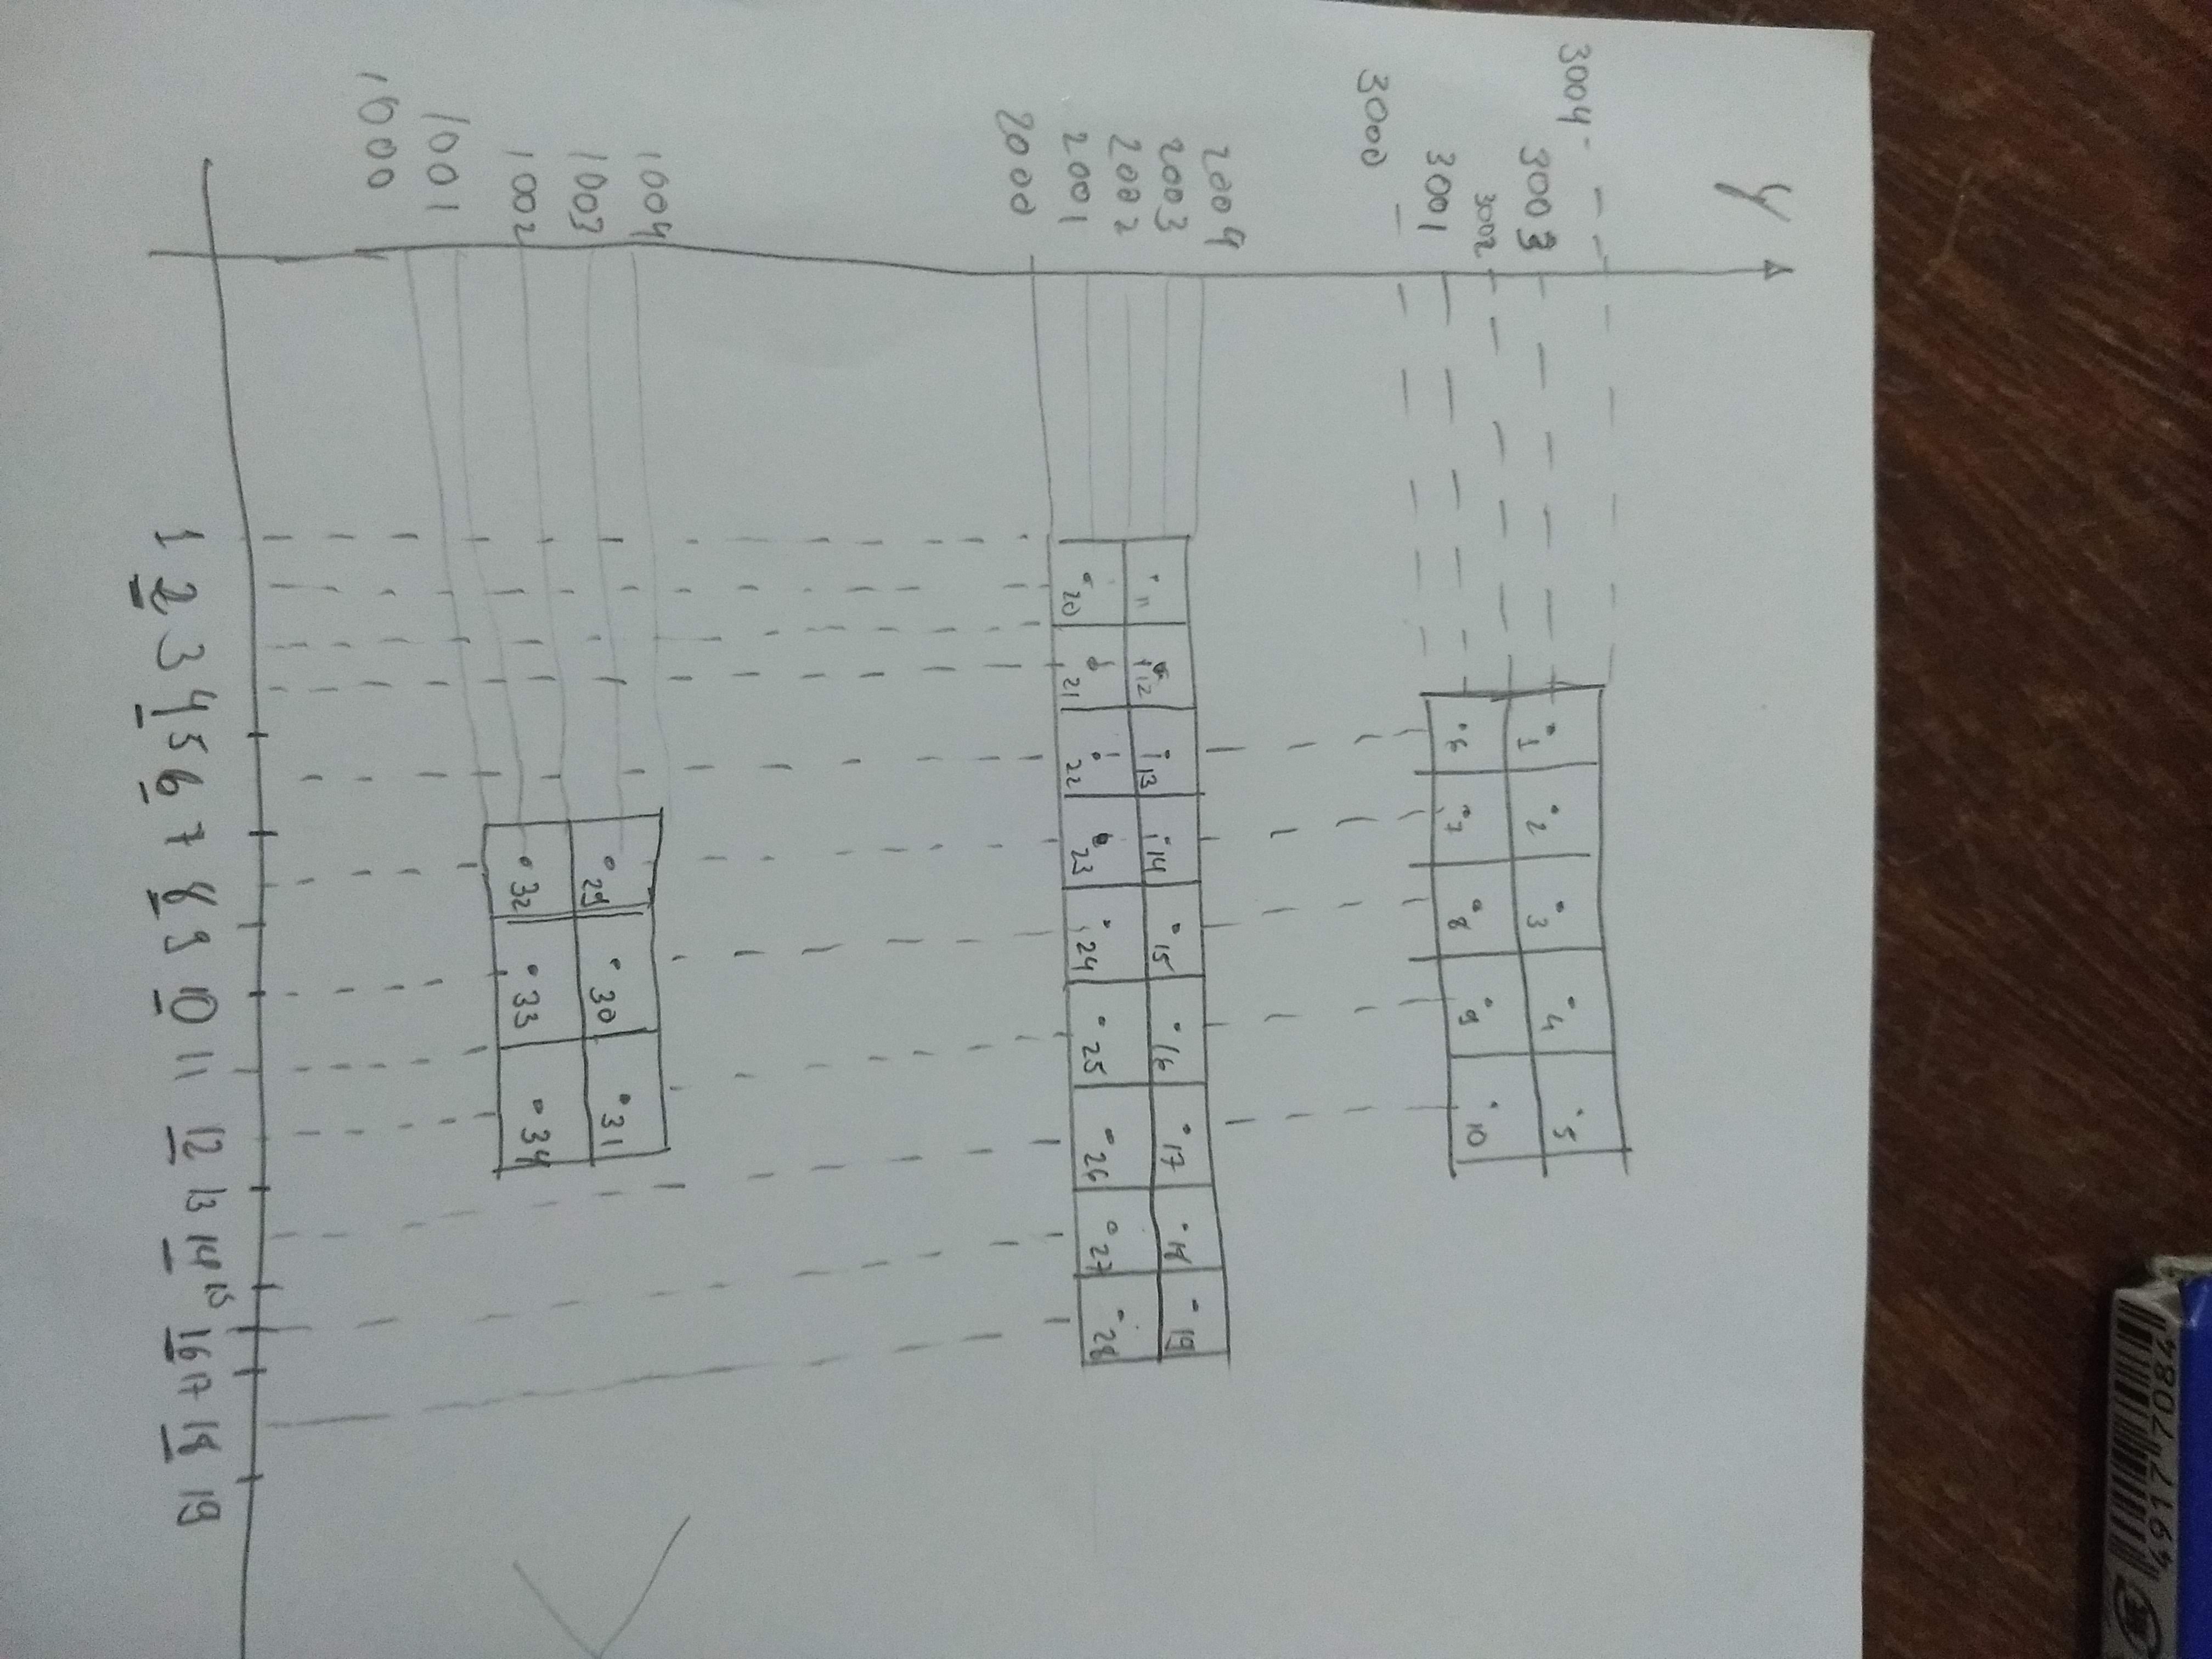 49177084
y
3004
3003
3002
3001
3000
1 2 3 4 5
6 7 8 9 10
2004
2003
2002
2001
2000
11 12 13 14 15 16 17 18 19
20 21 22 23 24 25 26 27 28
1004
1003
1002
1001
1000
29 30 31
32 33 34
1 2 3 4 5 6 7 8 9 10 11 12 13 14 15 16 17 18 19